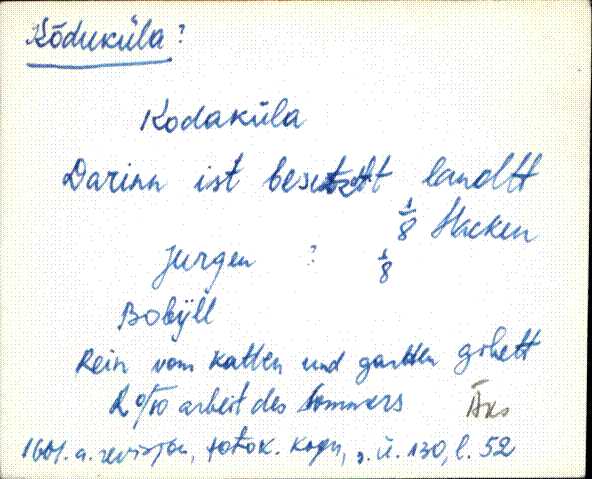 Kõduküla?
Kodaküla
Darinn ist besetztt landtt
1/8 Hacken
Jurgen ? 1/8
Bobÿll
Rein vom katten und gartten gibett
arbeit des Sommers Äks
1601. a. revisjon, fotok. kogu, s. ü. 130, l. 52